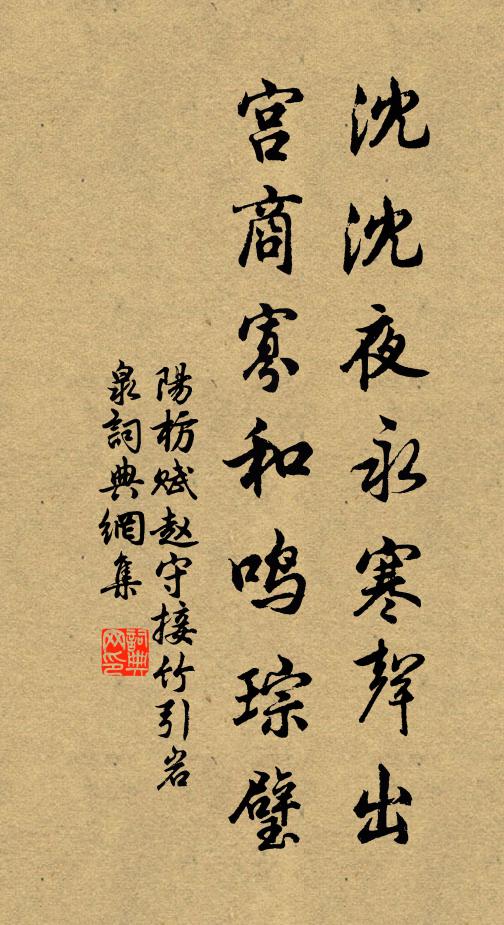 沈沈夜永寒聲出
宫商寡和鸣琮璧
陽枋赋赵守接竹引岩
泉詞典網集
詞典网印